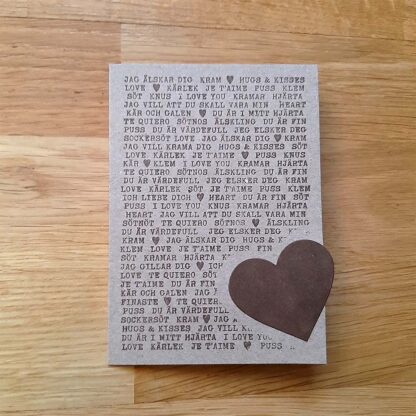 JAG ÄLSKAR DIG KRAM ♥ HUGS & KISSES
LOVE ♥ KÄRLEK JE T'AIME PUSS KLEM
SÖT KNUS I LOVE YOU KRAMAR HJÄRTA
JAG VILL ATT DU SKALL VARA MIN HEART
KÄR OCH GALEN ♥ DU ÄR I MITT HJÄRTA
TE QUIERO SÖTNOS ÄLSKLING DU ÄR FIN
PUSS DU ÄR VÄRDEFULL JEG ELSKER DEG
SOCKERSÖT LOVE JAG GILLAR DIG ♥ KRAM
JAG VILL KRAMA DIG HUGS & KISSES SÖT
LOVE KÄRLEK JE T'AIME ♥ PUSS KNUS
KÄR ♥ KLEM I LOVE YOU KRAMAR HJÄRTA
TE QUIERO SÖTNOS ♥ ÄLSKLING DU ÄR FIN
DU ÄR VÄRDEFULL JEG ELSKER DEG KRAM
LOVE KÄRLEK SÖT JE T'AIME PUSS KLEM
ICH LIEBE DICH ♥ HEART DU ÄR FIN SÖT
PUSS I LOVE YOU KNUS KRAMAR HJÄRTA
HEART JAG VILL ATT DU SKALL VARA MIN
SÖTNÖT TE QUIERO SÖTNOS ♥ ÄLSKLING
DU ÄR VÄRDEFULL JEG ELSKER DEG
KRAM ♥ JAG ÄLSKAR DIG HUGS &
LOVE ♥ KÄRLEK JE T'AIME PUSS
SÖT KRAMAR HJÄRTA
JAG GILLAR DIG ♥ ICH
TE QUIERO SÖTNOS
JE T'AIME DU ÄR FIN
KÄR OCH GALEN JAG
FINASTE ♥ TE QUIERO
PUSS DU ÄR VÄRDEFULL
SOCKERSÖT KRAM ♥ JAG
HUGS & KISSES JAG VILL
DU ÄR I MITT HJÄRTA I LOVE YOU
LOVE KÄRLEK JE T'AIME ♥ PUSS